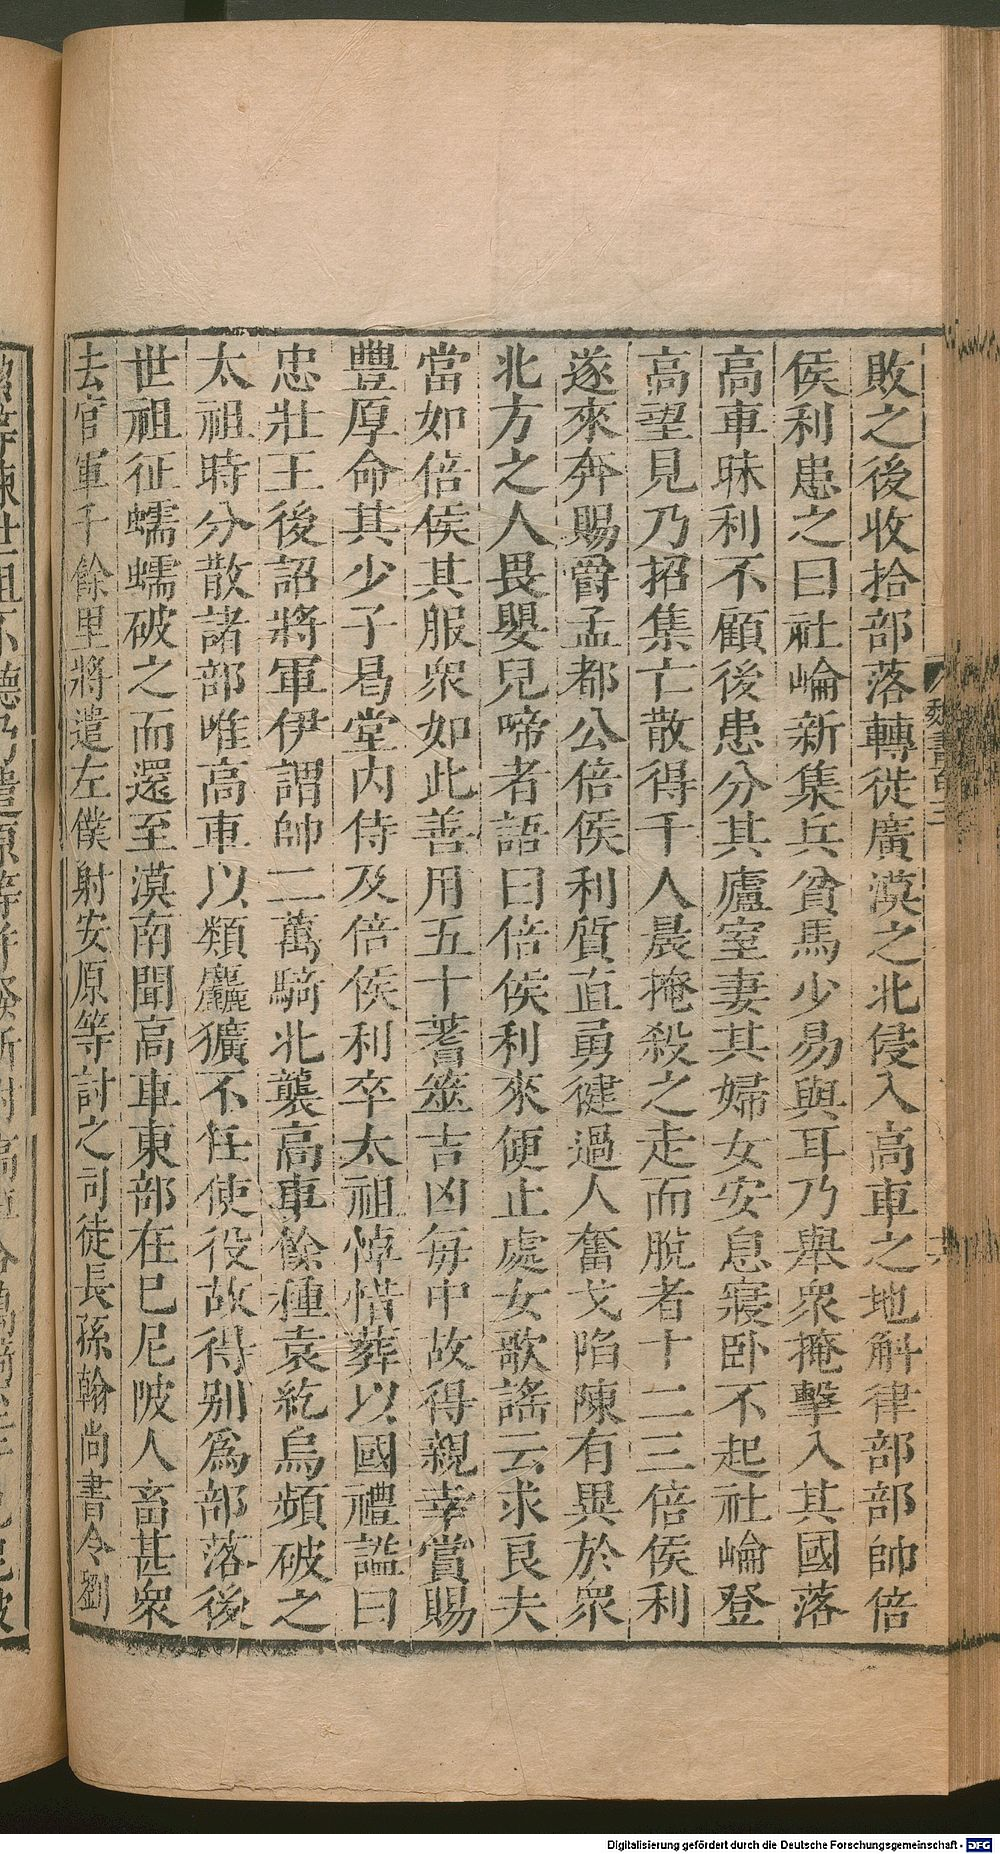 敗之後收拾部落轉徙廣漠之北侵入高車之地斛律部部帥倍
侯利患之曰社崘新集兵貧馬少易與耳乃舉衆掩擊入其國落
高車昧利不顧後患分其廬室妻其婦女安息寢卧不起社崘登
高望見乃招集亡散得千人晨掩殺之走而脫者十二三倍侯利
遂來奔賜爵孟都公倍侯利質直勇健過人奮戈陷陳有異於衆
北方之人畏嬰兒啼者語曰倍侯利來便止處女歌謠云求良夫
當如倍侯其服衆如此善用五十蓍筮吉凶每中故得親幸賞賜
豐厚命其少子曷堂內侍及倍侯利卒太祖悼惜葬以國禮謚曰
忠壯王後詔將軍伊謂帥二萬騎北襲高車餘種袁紇烏頻破之
太祖時分散諸部唯高車以類麤獷不任使役故得別爲部落後
世祖征蠕蠕破之而還至漠南聞高車東部在巳尼陂人畜甚衆
去官軍千餘里將遣左僕射安原等討之司徒長孫翰尚書令劉
Digitalisierung gefördert durch die Deutsche Forschungsgemeinschaft - DFG